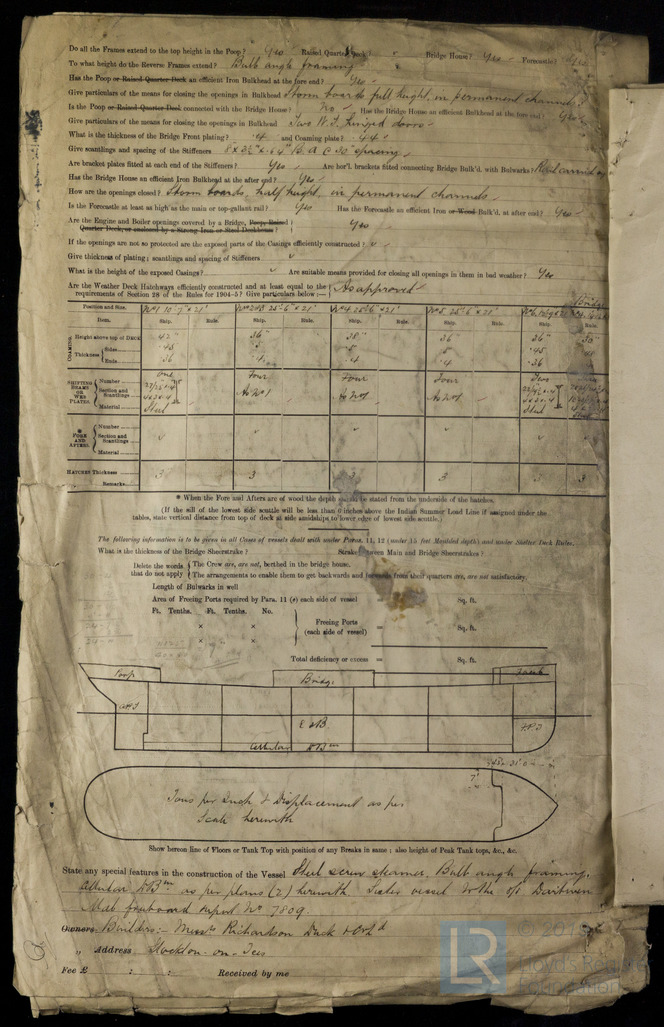 Do all the Frames extend to the top height in the Poop? Yes Raised Quarter Deck? " Bridge House? Yes Forecastle? Yes
To what height do the Reverse Frames extend? Bulb angle framing
Has the Poop or Raised Quarter Deck an efficient Iron Bulkhead at the fore end? Yes
Give particulars of the means for closing the openings in Bulkhead Storm boards full height, in permanent channels
Is the Poop or Raised Quarter Deck connected with the Bridge House? No Has the Bridge House an efficient Bulkhead at the fore end? Yes
Give particulars of the means for closing the openings in Bulkhead Two W.T. hinged doors
What is the thickness of the Bridge Front plating? .4 and Coaming plate? .44
Give scantlings and spacing of the Stiffeners B.A @ 30" spacing
Are bracket plates fitted at each end of the Stiffeners? Yes Are hor'l. brackets fitted connecting Bridge Bulk'd. with Bulwarks?
Has the Bridge House an efficient Iron Bulkhead at the after end? Yes
How are the openings closed? Storm boards, half height, in permanent channels
Is the Forecastle at least as high as the main or top-gallant rail? Yes Has the Forecastle an efficient Iron or Wood Bulk'd. at after end? Yes
Are the Engine and Boiler openings covered by a Bridge, Poop, Raised Quarter Deck, or enclosed by a Strong Iron or Steel Deckhouse? Yes
If the openings are not so protected are the exposed parts of the Casings efficiently constructed? "
Give thickness of plating; scantlings and spacing of Stiffeners "
What is the height of the exposed Casings? " Are suitable means provided for closing all openings in them in bad weather? Yes
Are the Weather Deck Hatchways efficiently constructed and at least equal to the
requirements of Section 28 of the Rules for 1904-5? Give particulars below:— As approved
Position and Size. No 4 25'-6" × 21' No 5 25'-6" × 21' Bridge
Item. Ship. Rule. Ship. Rule. Ship. Rule. Ship. Rule. Ship. Ship. Rule.
COAMING. Height above top of DECK 36" 36 36"
Thickness Sides .45 .5 .5 .5 .45
Ends .36 .4 .4 .4 .36
SHIFTING BEAMS OR WEB PLATES. Number One Four Four Four Two
Section and Scantlings As No 1 As No 1 As No 1
Material Steel Steel
* FORE AND AFTERS. Number
Section and Scantlings " " " " " "
Material
HATCHES Thickness 3" 3 3 3 3 3
Remarks
* When the Fore and Afters are of wood the depth must be stated from the underside of the hatches.
(If the sill of the lowest side scuttle will be less than 6 inches above the Indian Summer Load Line if assigned under the
tables, state vertical distance from top of deck at side amidships to lower edge of lowest side scuttle.
The following information is to be given in all Cases of vessels dealt with under Paras. 11, 12 (under 15 feet Moulded depth) and under Shelter Deck Rules.
What is the thickness of the Bridge Sheerstrake? Strake between Main and Bridge Sheerstrakes?
Delete the words that do not apply
The Crew are, are not, berthed in the bridge house.
The arrangements to enable them to get backwards and forwards from their quarters are, are not satisfactory.
Length of Bulwarks in well
Area of Freeing Ports required by Para. 11 (e) each side of vessel Sq. ft.
Ft. Tenths. Ft. Tenths. No.
× ×
× ×
Freeing Ports (each side of vessel) = Sq. ft.
Total deficiency or excess = Sq. ft.
Poop Bridge
E & B
F.P.T
Cellular D.Bm
Tons per Inch & Displacement as per
Scale herewith
Show hereon line of Floors or Tank Top with position of any Breaks in same; also height of Peak Tank tops, &c., &c.
State any special features in the construction of the Vessel Steel screw steamer, Bulb angle framing,
Cellular D.Bm as per plans (2) herewith. Sister vessel to the s/s
freeboard report No 7809.
Owners: Builders:- Messrs Richardson Duck & Co Ld
" Address Stockton-on-Tees
Fee £ : : Received by me
LR © 201
Lloyd's Register
FOUNDATION